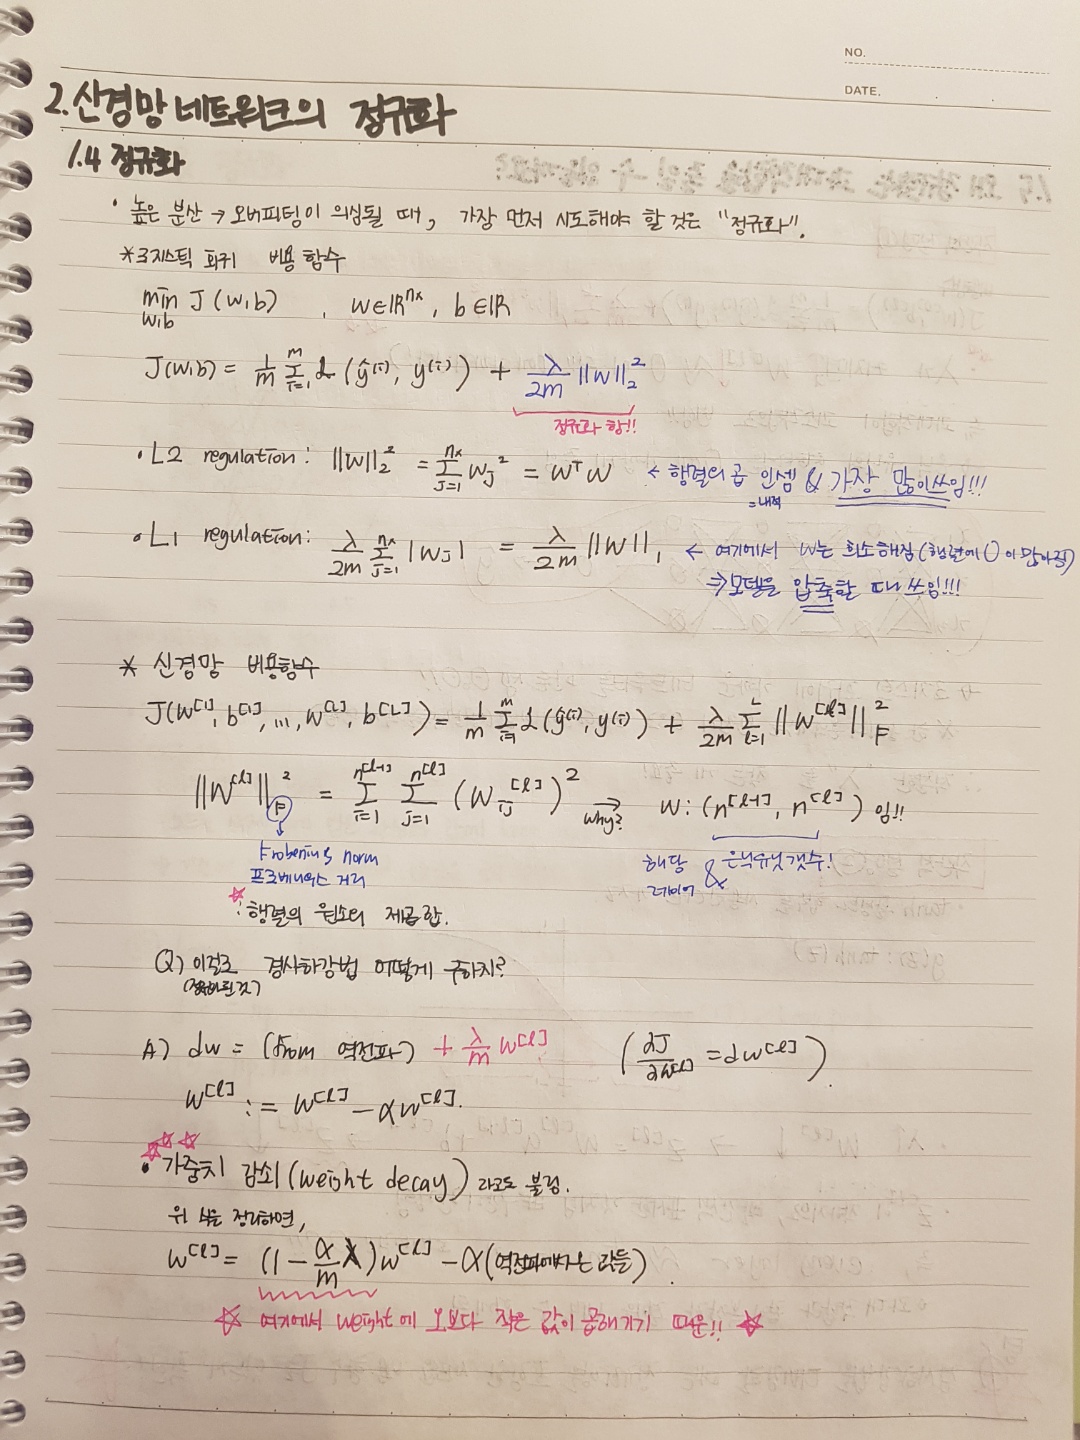 NO.
DATE.
2. 신경망 네트워크의 정규화
1.4 정규화
• 높은 분산 → 오버피팅이 의심될 때, 가장 먼저 시도해야 할 것은 "정규화".
*로지스틱 회귀 비용 함수
min J(w,b) , w∈ℝⁿˣ, b∈ℝ
w,b
J(w,b) = 1/m Σᵢ₌₁ᵐ L(ŷ⁽ⁱ⁾, y⁽ⁱ⁾) + λ/2m ||w||₂²
정규화 항!!
• L2 regulation: ||w||₂² = Σⱼ₌₁ⁿˣ wⱼ² = wᵀw ← 행렬의 곱 인셈 & 가장 많이쓰임!!!
=내적
• L1 regulation: λ/2m Σⱼ₌₁ⁿˣ |wⱼ| = λ/2m ||w||₁ ← 여기에서 w는 희소해짐(행렬에 0이 많아짐)
⇒ 모델을 압축할 때 쓰임!!!
* 신경망 비용함수
J(w[1], b[1], ..., w[L], b[L]) = 1/m Σᵢ₌₁ᵐ L(ŷ⁽ⁱ⁾, y⁽ⁱ⁾) + λ/2m Σₗ₌₁ᴸ ||w[l]||²_F
||w[l]||²_F = Σᵢ₌₁^n[l-1] Σⱼ₌₁^n[l] (wᵢⱼ[l])² → why? w: (n[l-1], n[l]) 임!!
Frobenius norm
프로베니우스 거리
해당 레이어 & 은닉유닛 갯수!
☆: 행렬의 원소의 제곱합.
Q) 이걸로 경사하강법 어떻게 구하지?
A) dw = (from 역전파) + λ/m w[l] (∂J/∂w[l] = dw[l])
w[l] := w[l] - αw[l].
☆☆☆
• 가중치 감쇠(weight decay) 라고도 불림.
위 식을 정리하면,
w[l] = (1 - α/m λ)w[l] - α(역전파에서 나온 것들)
☆ 여기에서 weight에 1보다 작은 값이 곱해지기 때문!! ☆